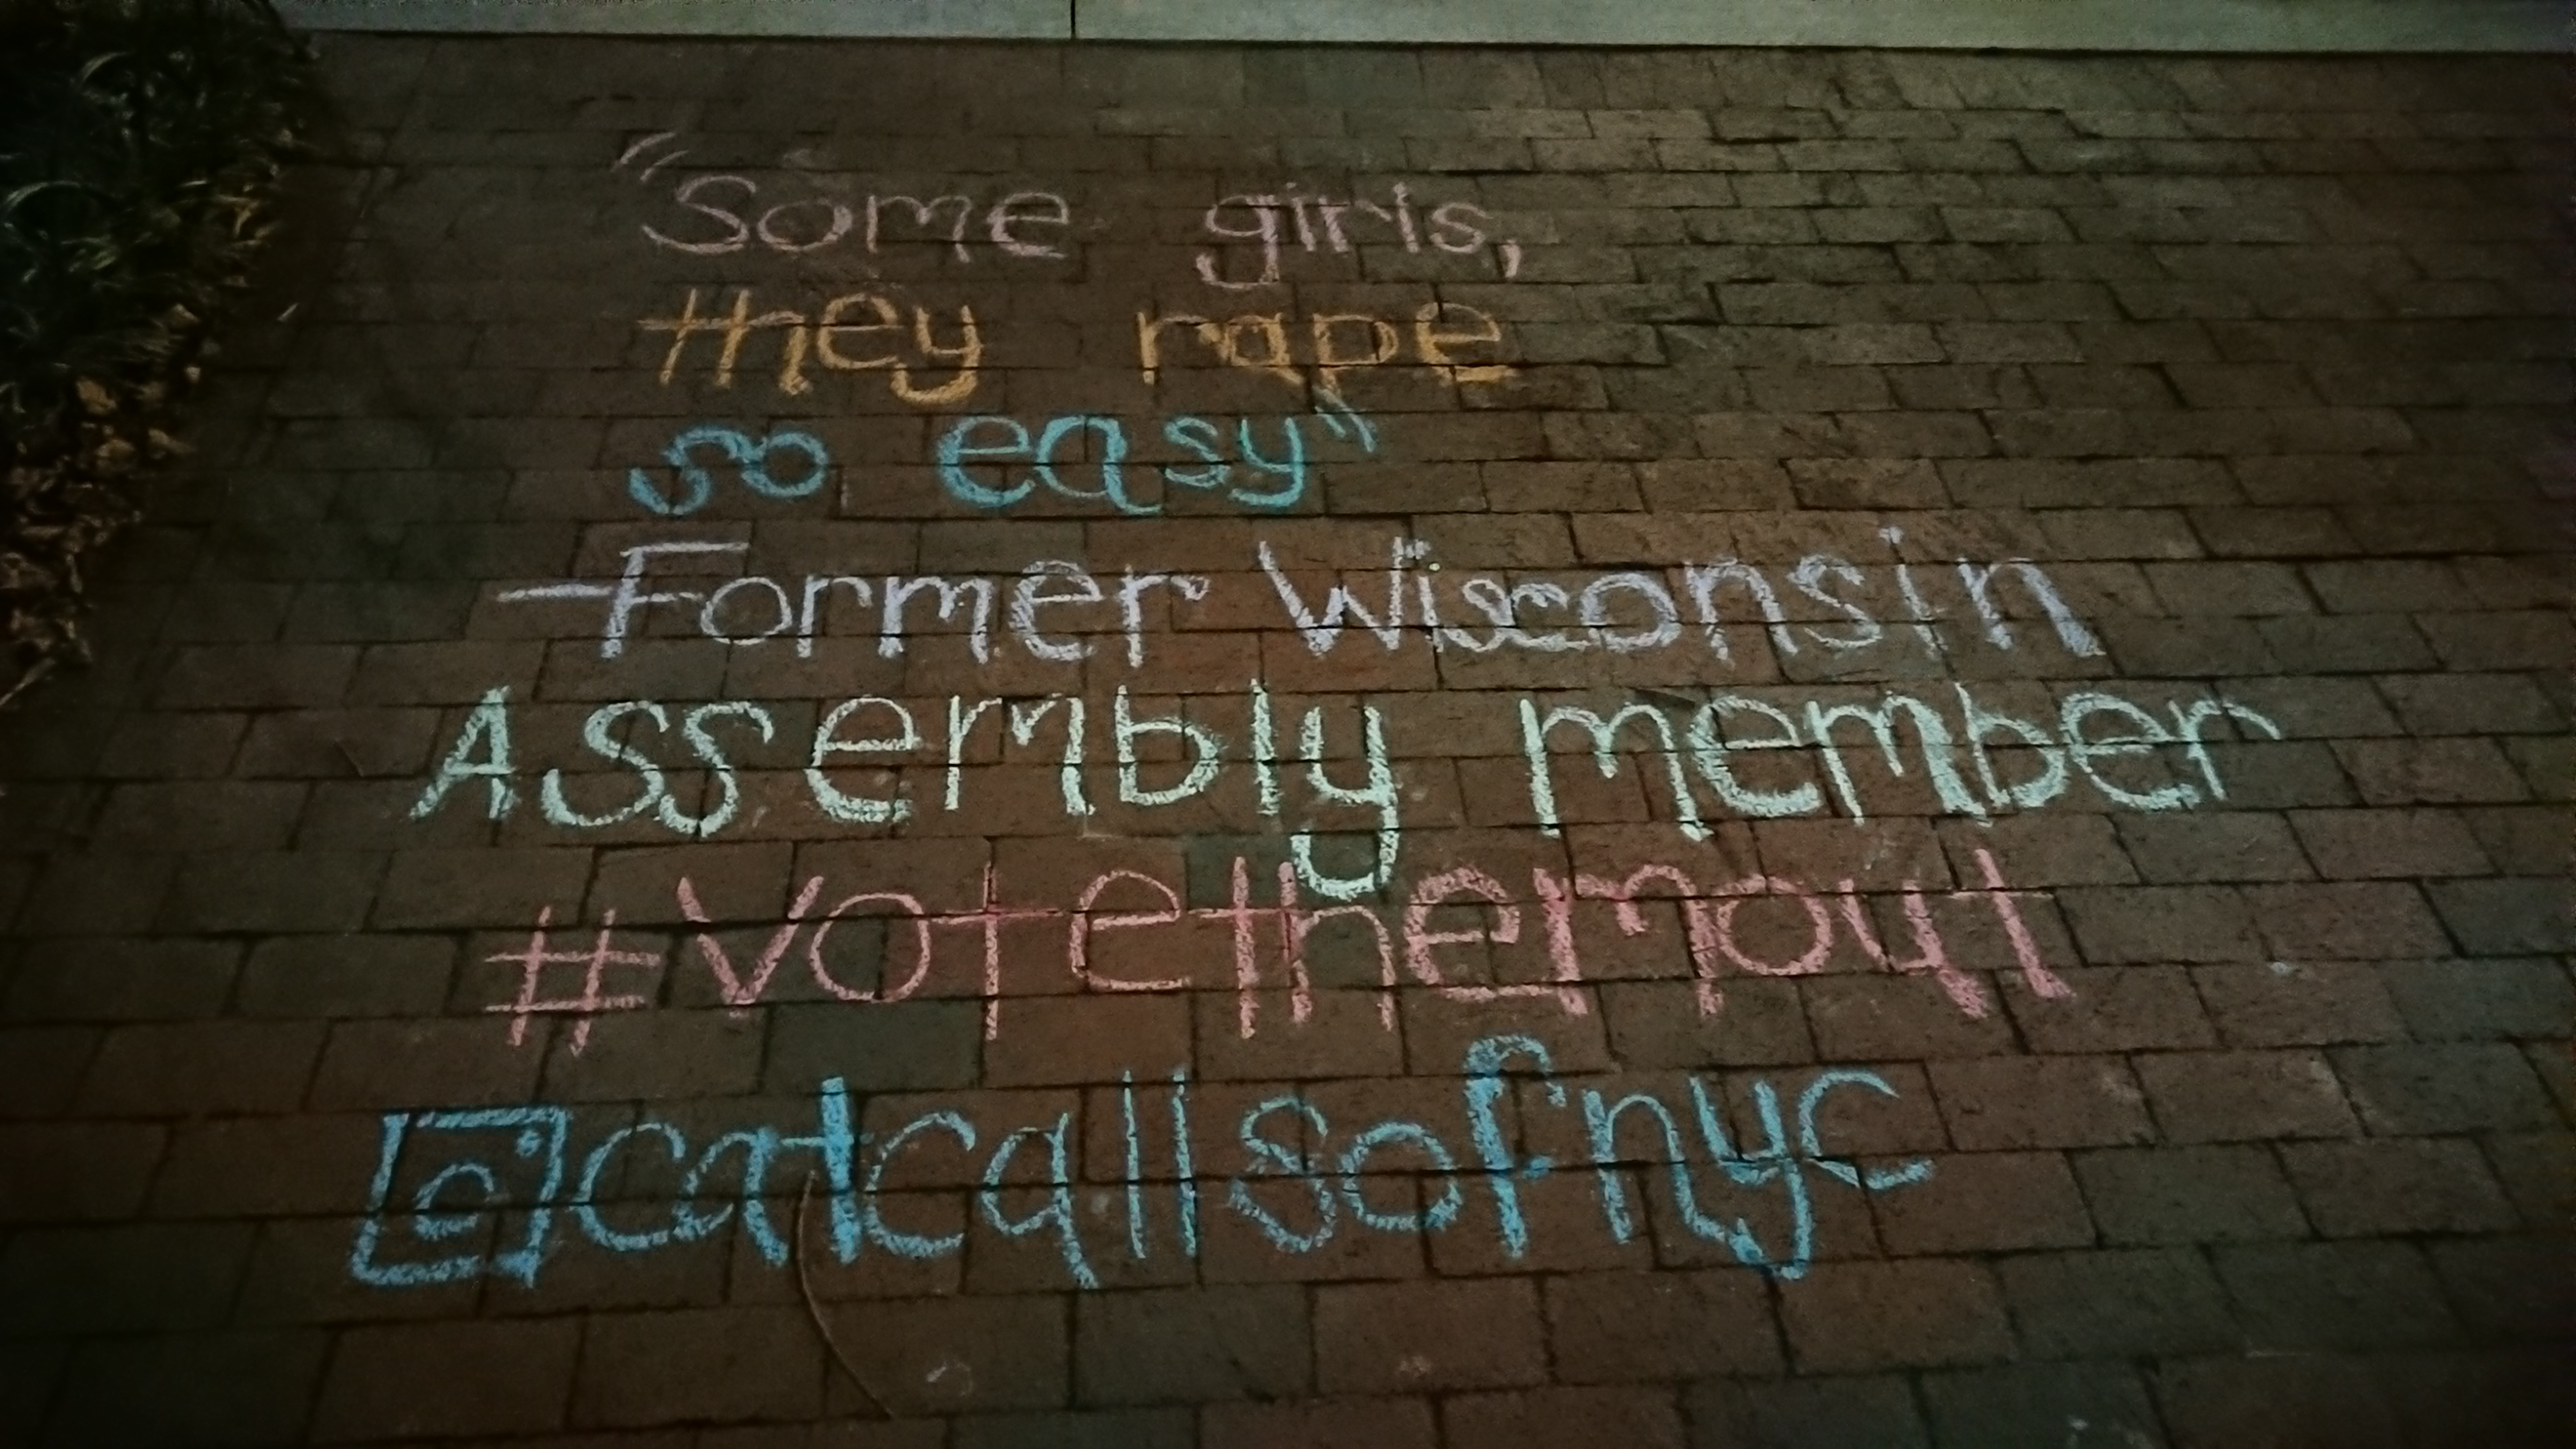 "Some girls,
they rape
so easy"
-Former Wisconsin
Assembly member
#Votethemout
catcallsofnyc